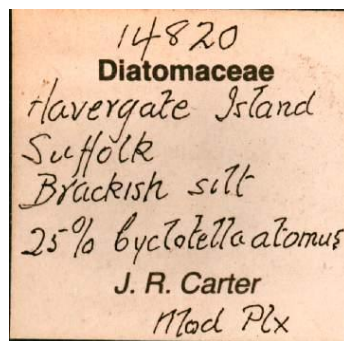 14820
Diatomaceae
Havergate Island
Suffolk
Brackish silt
25% Cyclotella atomus
J. R. Carter
Mod Plx